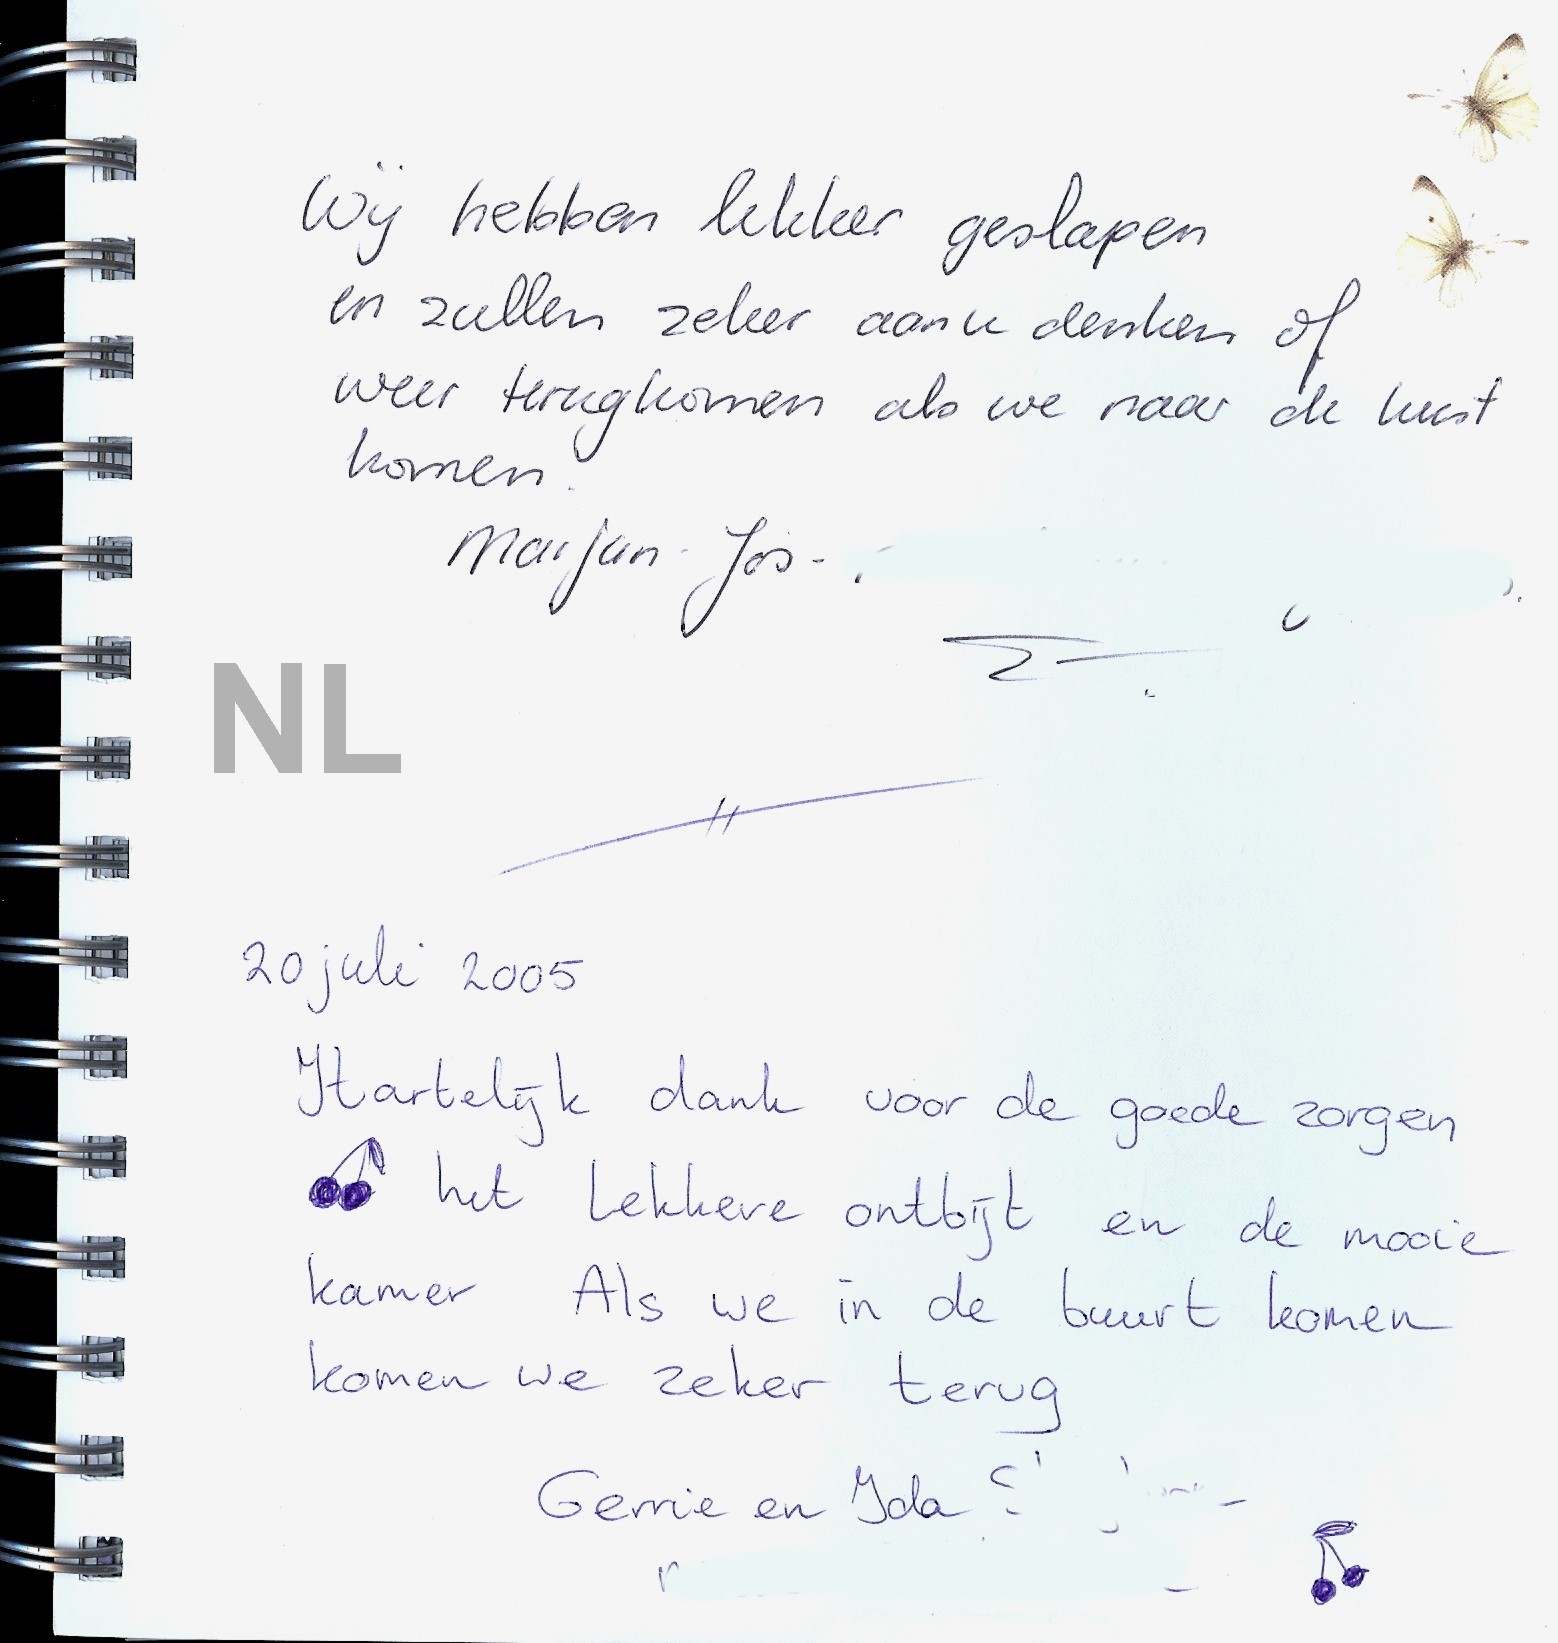 Wij hebben lekker geslapen
en zullen zeker aan u denken of
weer terugkomen als we naar de kust
komen.
Marjan - Jos -
NL
20 juli 2005
Hartelijk dank voor de goede zorgen
het lekkere ontbijt en de mooie
kamer Als we in de buurt komen
komen we zeker terug
Gerrie en Ida